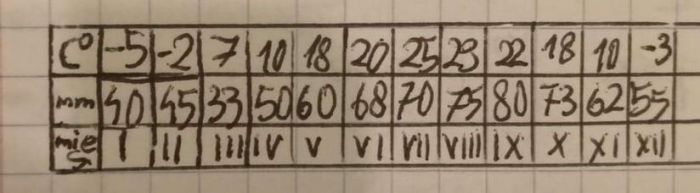 C° -5 -2 7 10 18 20 25 23 22 18 10 -3
mm 40 45 33 50 60 68 70 75 80 73 62 55
mie I II III IV V VI VII VIII IX X XI XII
ś